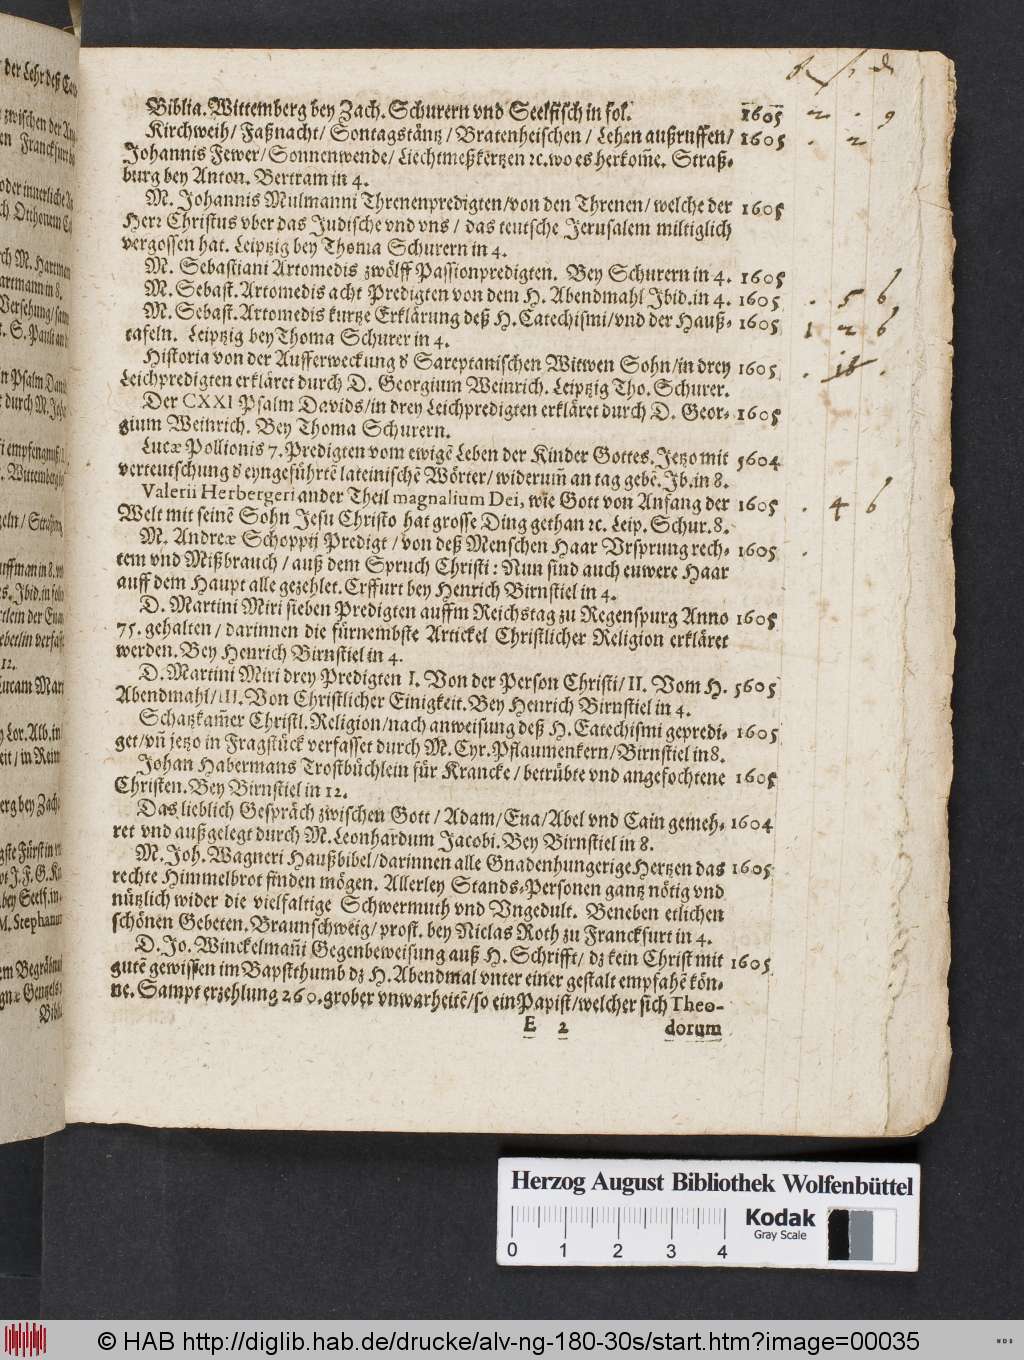 Biblia. Wittemberg bey Zach. Schurern vnd Seelfisch in fol. 1605 2 . 9
Kirchweih/ Faßnacht/ Sontagstäntz/ Bratenheischen/ Lehen außruffen/ 1605 . 2
Johannis Fewer/ Sonnenwende/ Liechtmeßkertzen ꝛc. wo es herkom̃e. Straß-
burg bey Anton. Bertram in 4.
M. Johannis Mulmanni Threnenpredigten/ von den Threnen/ welche der 1605
Herr Christus vber das Judische vnd vns/ das teutsche Jerusalem miltiglich
vergossen hat. Leiptzig bey Thoma Schurern in 4.
M. Sebastiani Artomedis zwölff Passionpredigten. Bey Schurern in 4. 1605
M. Sebast. Artomedis acht Predigten von dem H. Abendmahl Ibid. in 4. 1605 . 5 6
M. Sebast. Artomedis kurtze Erklärung deß H. Catechismi/ vnd der Hauß- 1605 1 2 6
tafeln. Leiptzig bey Thoma Schurer in 4.
Historia von der Aufferweckung d Sareptanischen Witwen Sohn/ in drey 1605 . 18 .
Leichpredigten erkläret durch D. Georgium Weinrich. Leiptzig Tho. Schurer.
Der CXXI Psalm Davids/ in drey Leichpredigten erkläret durch D. Geor- 1605
gium Weinrich. Bey Thoma Schurern.
Lucæ Pollionis 7. Predigten vom ewigẽ Leben der Kinder Gottes. Jetzo mit 1604
verteutschung d eyngeführtẽ lateinischẽ Wörter/ widerum̃ an tag gebẽ. Ib. in 8.
Valerii Herbergeri ander Theil magnalium Dei, wie Gott von Anfang der 1605 . 4 6
Welt mit seinẽ Sohn Jesu Christo hat grosse Ding gethan ꝛc. Leip. Schur. 8.
M. Andreæ Schoppij Predigt/ von deß Menschen Haar Vrsprung rech- 1605 .
tem vnd Mißbrauch/ auß dem Spruch Christi: Nun sind auch euwere Haar
auff dem Haupt alle gezehlet. Erffurt bey Henrich Birnstiel in 4.
D. Martini Miri sieben Predigten auffm Reichstag zu Regenspurg Anno 1605
75. gehalten/ darinnen die fürnembste Artickel Christlicher Religion erkläret
werden. Bey Henrich Birnstiel in 4.
D. Martini Miri drey Predigten I. Von der Person Christi/ II. Vom H. 1605
Abendmahl/ III. Von Christlicher Einigkeit. Bey Henrich Birnstiel in 4.
Schatzkam̃er Christl. Religion/ nach anweisung deß H. Catechismi gepredi- 1605
get/ vñ jetzo in Fragstück verfasset durch M. Cyr. Pflaumenkern/ Birnstiel in 8.
Johan Habermans Trostbüchlein für Krancke/ betrübte vnd angefochtene 1605
Christen. Bey Birnstiel in 12.
Das lieblich Gespräch zwischen Gott/ Adam/ Eua/ Abel vnd Cain gemeh- 1604
ret vnd außgelegt durch M. Leonhardum Jacobi. Bey Birnstiel in 8.
M. Joh. Wagneri Haußbibel/ darinnen alle Gnadenhungerige Hertzen das 1605
rechte Himmelbrot finden mögen. Allerley Stands-Personen gantz nötig vnd
nützlich wider die vielfaltige Schwermuth vnd Vngedult. Beneben etlichen
schönen Gebeten. Braunschweig/ prost. bey Niclas Roth zu Franckfurt in 4.
D. Jo. Winckelmañi Gegenbeweisung auß H. Schrifft/ dz kein Christ mit 1605
gutẽ gewissen im Bapstthumb dz H. Abendmal vnter einer gestalt empfahẽ kön-
ne. Sampt erzehlung 260. grober vnwarheitẽ/ so ein Papist/ welcher sich Theo-
E 2 dorum
Herzog August Bibliothek Wolfenbüttel
0 1 2 3 4
Kodak
Gray Scale
© HAB http://diglib.hab.de/drucke/alv-ng-180-30s/start.htm?image=00035